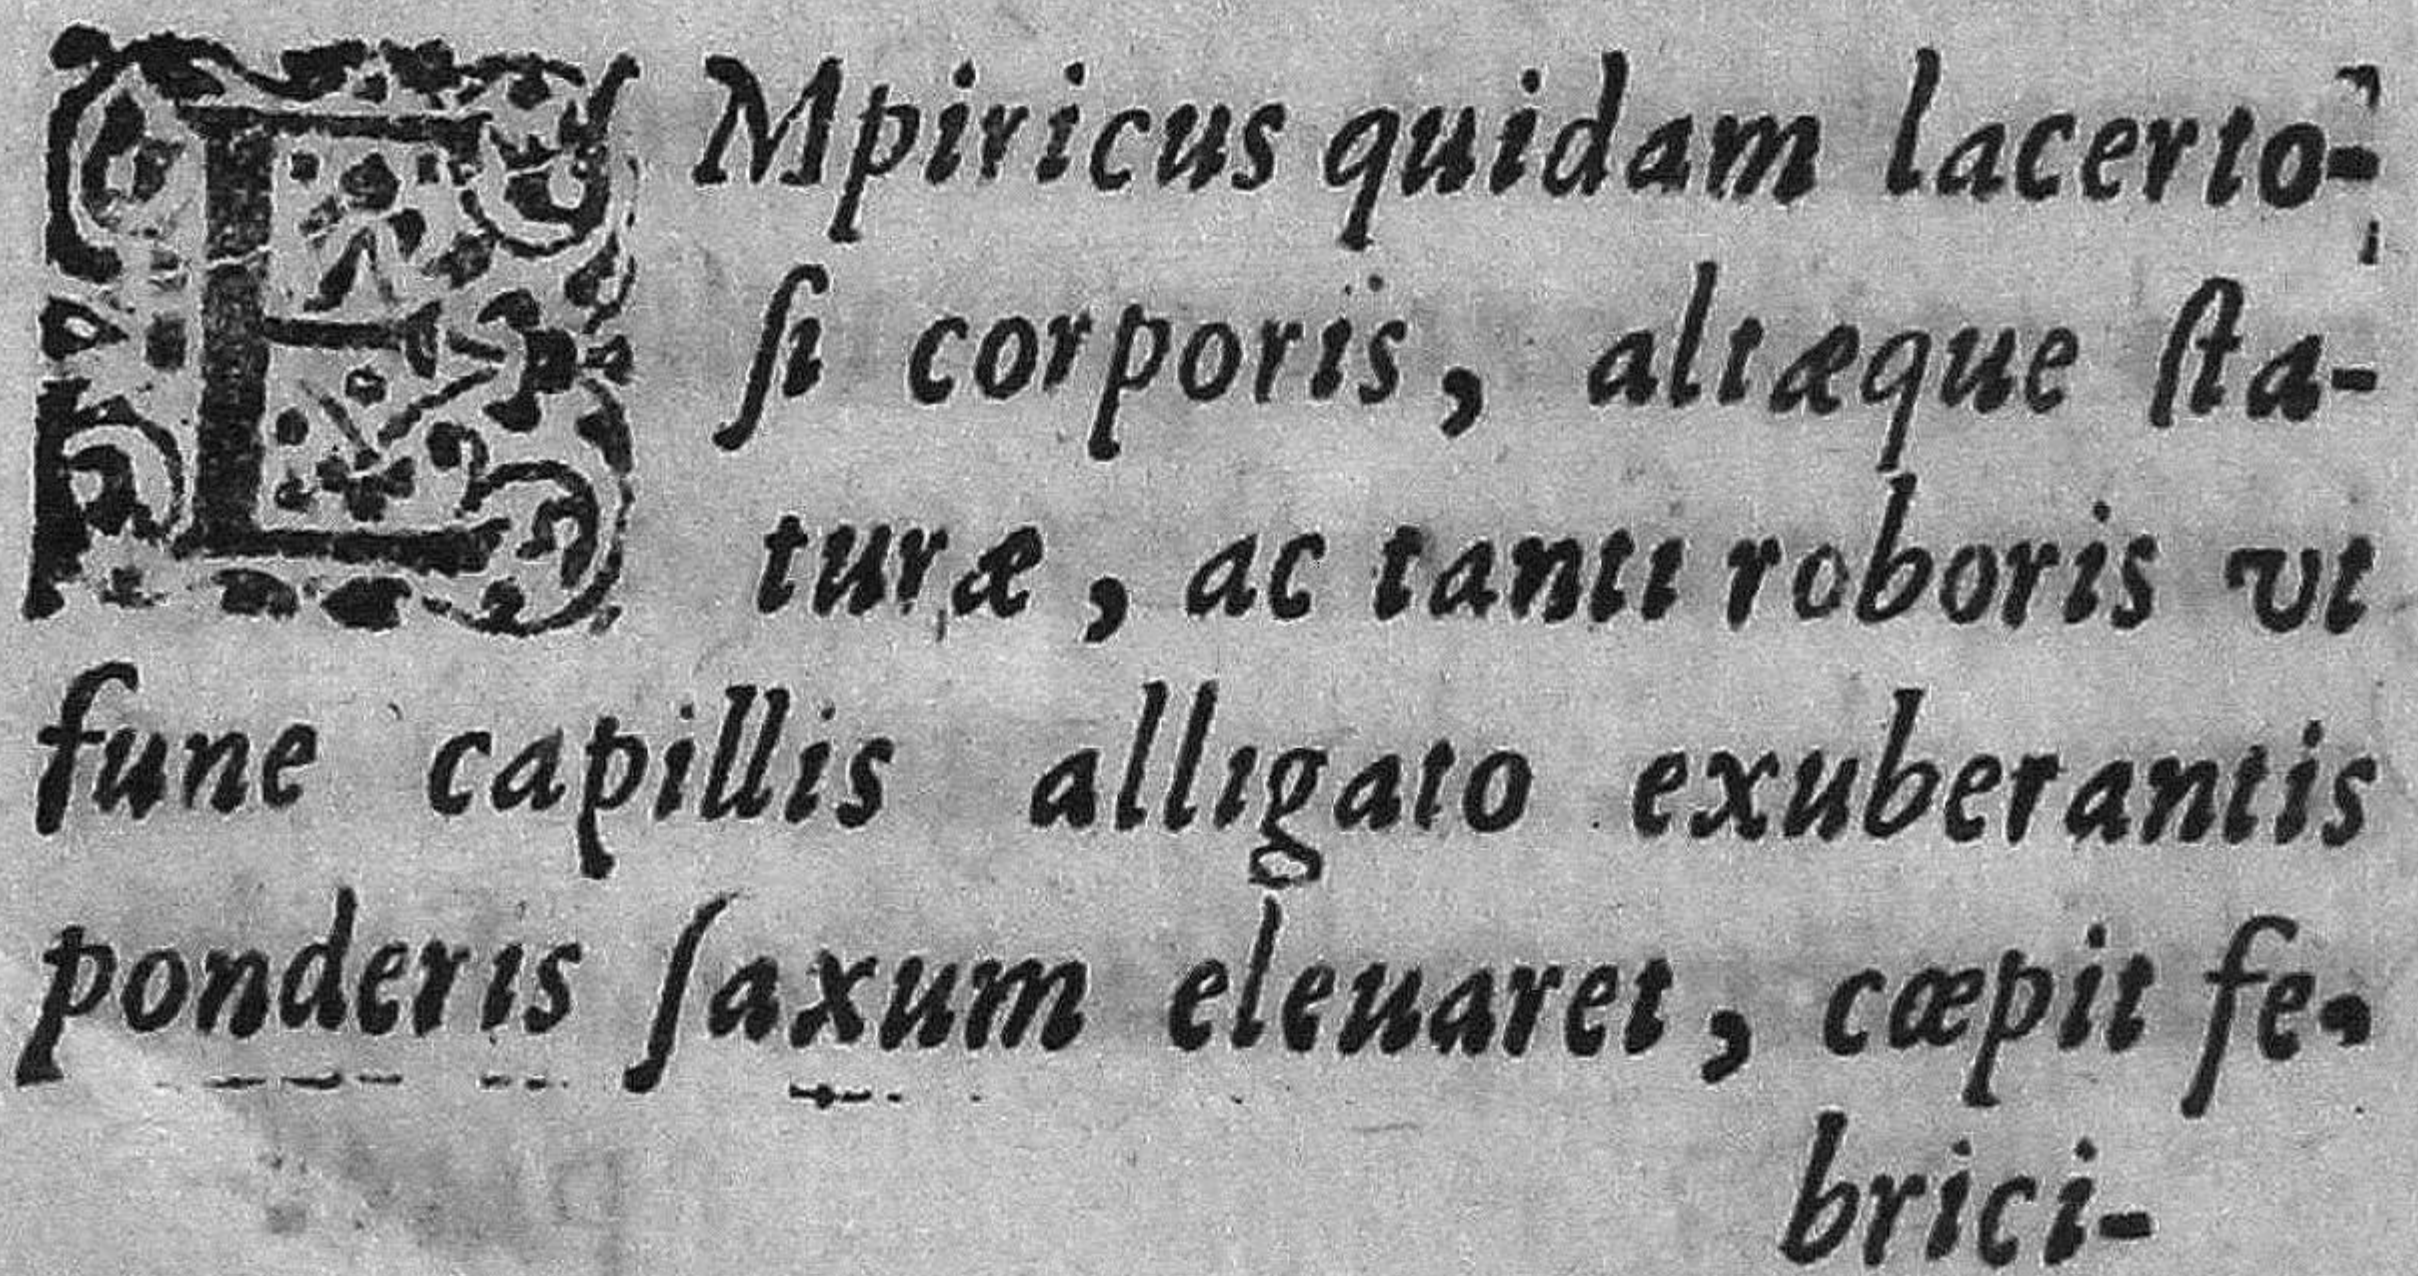 EMpiricus quidam lacerto-
ſi corporis, altæque ſta-
turæ, ac tanti roboris vt
fune capillis alligato exuberantis
ponderis ſaxum eleuaret, cœpit fe-
brici-